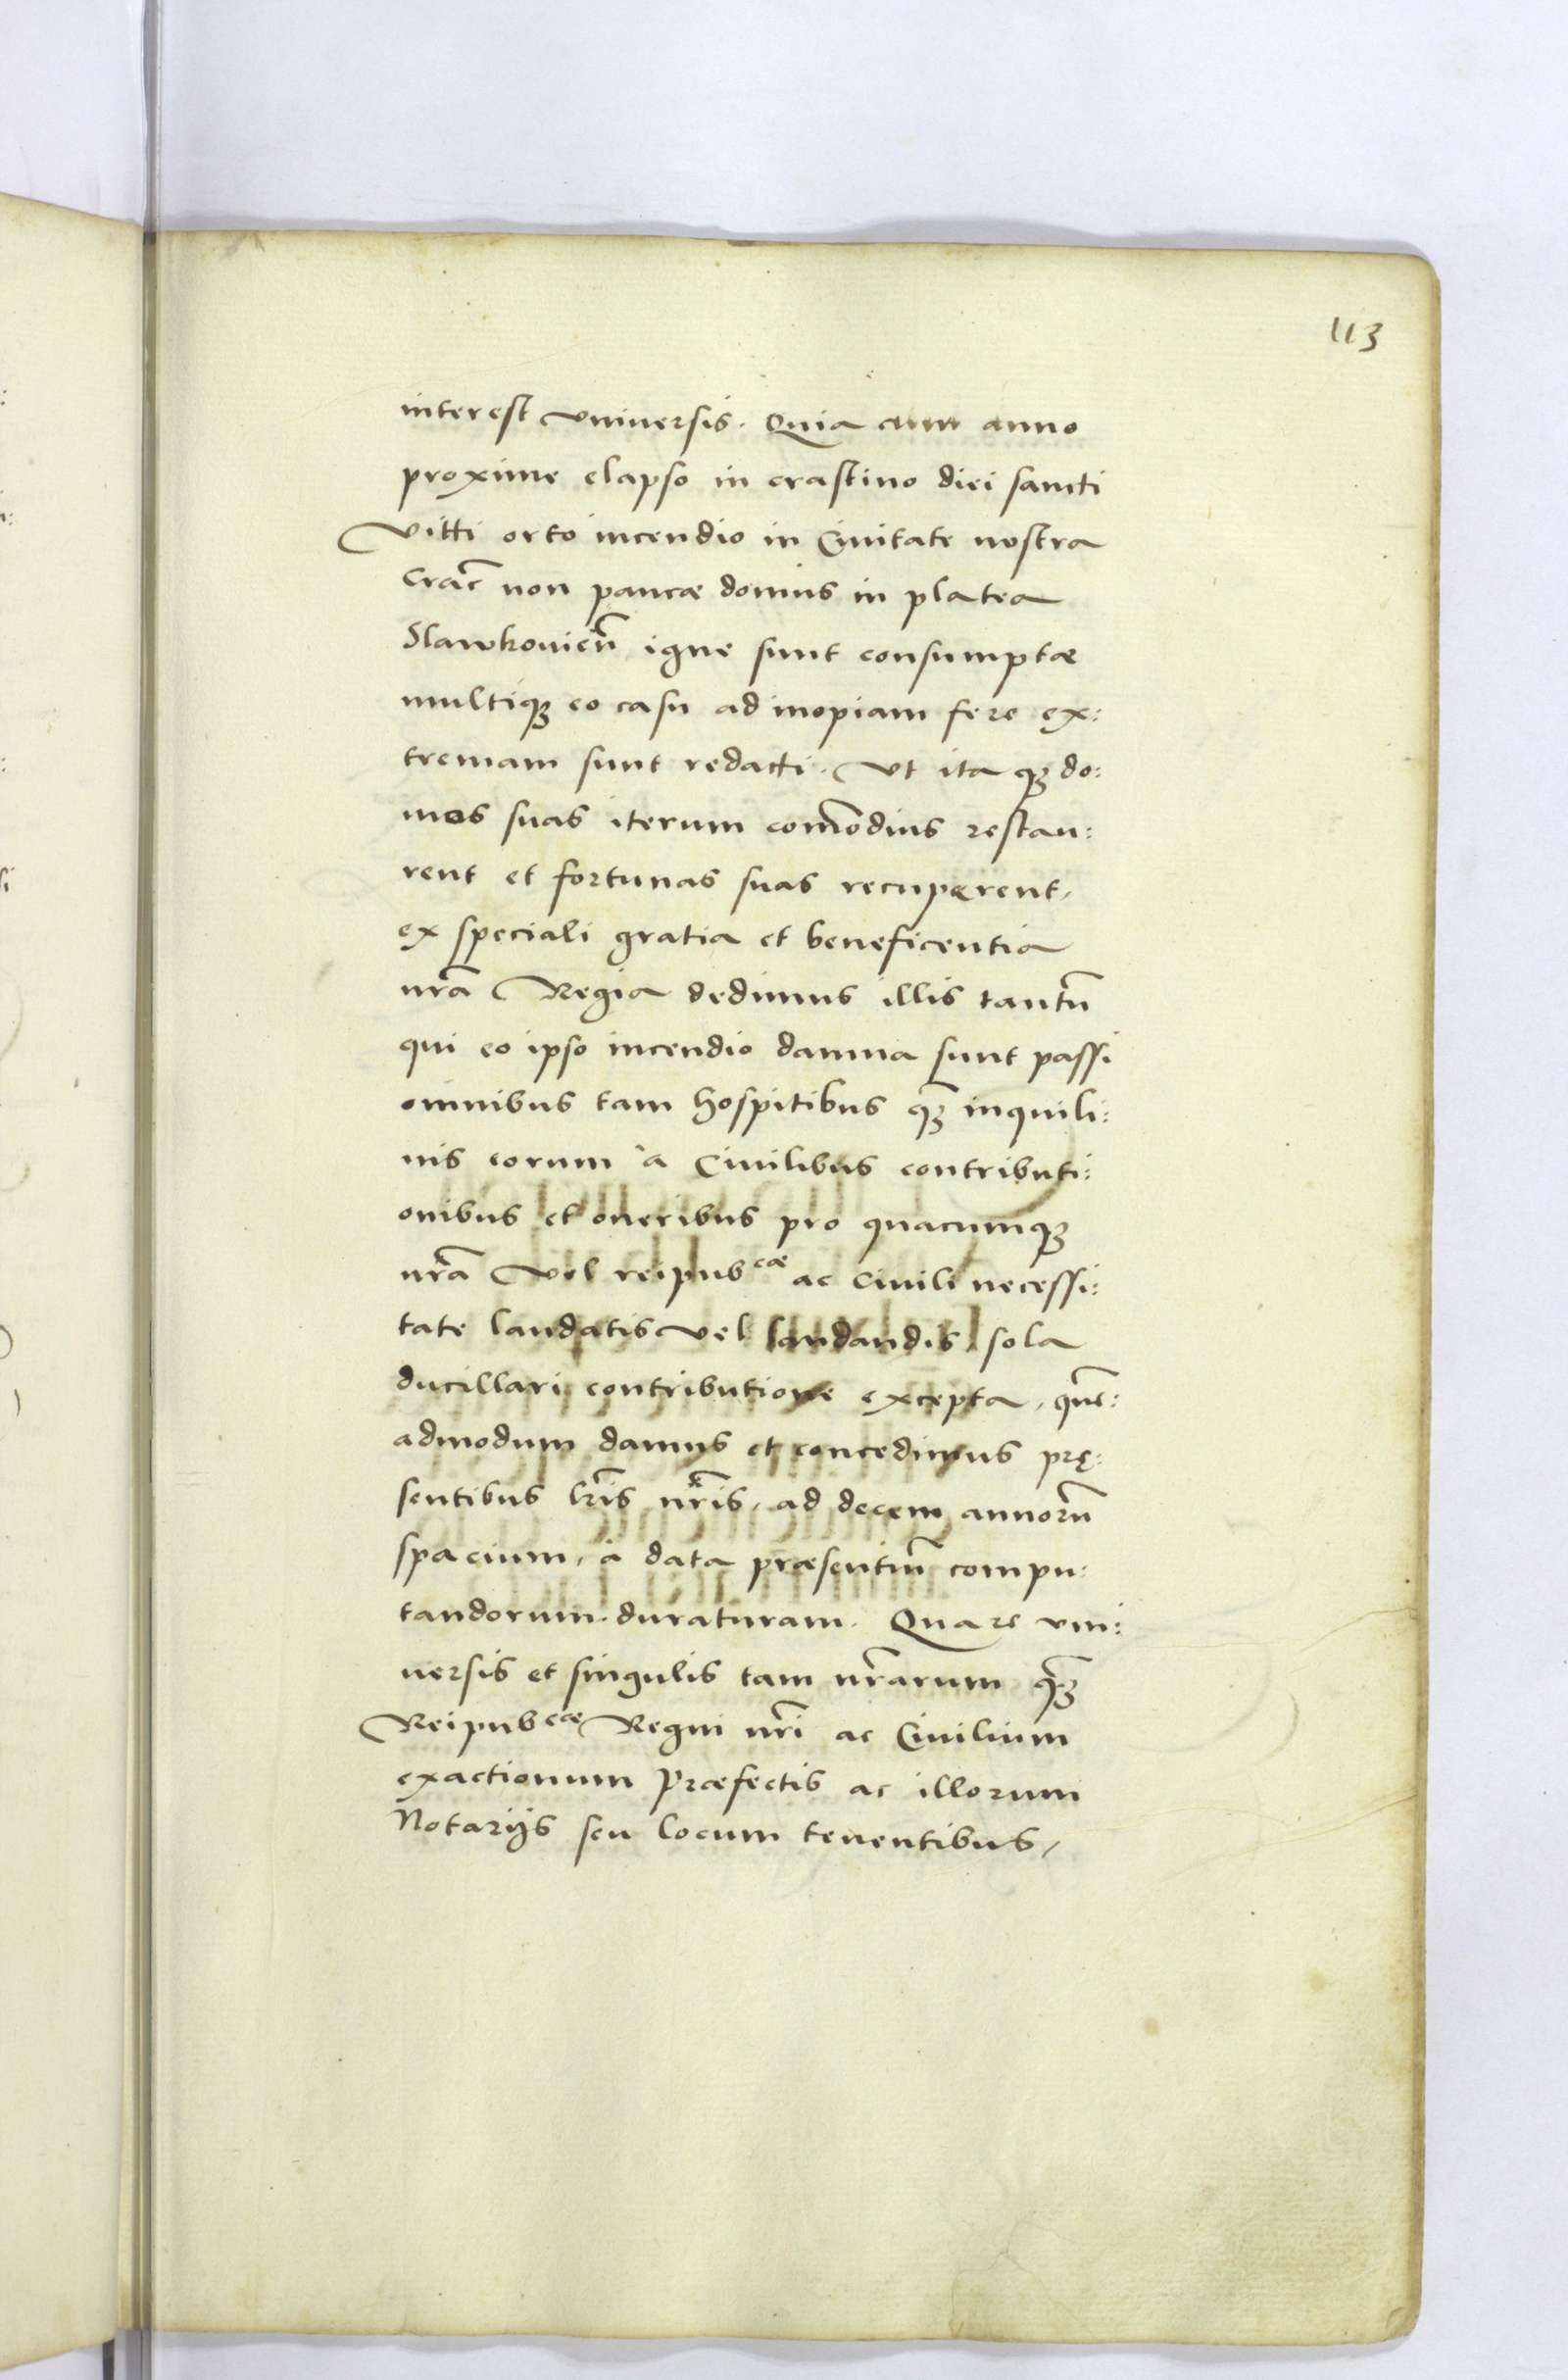 113
interest vniuersis. Quia cum anno
proxime elapso in crastino diei sancti
Vitti orto incendio in Ciuitate nostra
Crac̃ non paucæ domus in platea
Slawkouień igne sunt consumptæ
multiq₃ eo casu ad inopiam fere ex:
tremam sunt redacti. Vt ita q₃ do:
mos suas iterum com̃odius restau:
rent et fortunas suas recuperent,
ex speciali gratia et beneficentia
nr̃a Regia dedimus illis tantũ
qui eo ipso incendio damna sunt passi
omnibus tam hospitibus q̃₃ inquili:
nis eorum à Ciuilibus contributi:
onibus et oneribus pro quacumq₃
nr̃a vel reipub^cæ ac Ciuili necessi:
tate laudatis vel laudandis, sola
ducillari contributione excepta, que̅:
admodum damus et concedimus prę:
sentibus lr̃is nr̃is, ad decem annorũ
spacium, à data præsentiũ compu:
tandorum duraturam. Quare vni:
uersis et singulis tam nr̃arum q̃₃
Reipub^cæ Regni nr̃i ac Ciuilium
exactionum Præfectis ac illorum
Notarijs seu locum tenentibus,